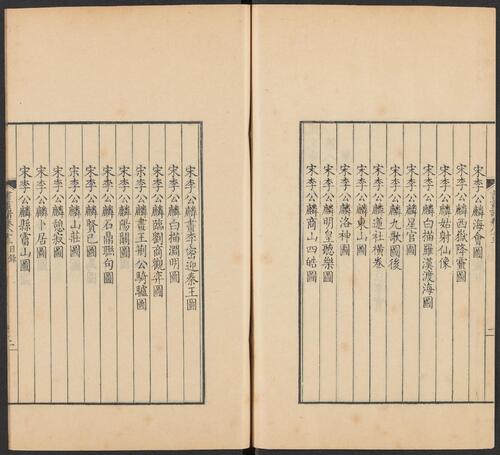 宋李公麟海會圖
宋李公麟西嶽降靈圖
宋李公麟姑射仙像
宋李公麟白描羅漢渡海圖
宋李公麟星官圖
宋李公麟九歌圖後
宋李公麟蓮社橫卷
宋李公麟東山圖
宋李公麟洛神圖
宋李公麟明皇聽樂圖
宋李公麟商山四皓圖
宋李公麟畫李密迎秦王圖
宋李公麟白描淵明圖
宋李公麟臨劉商觀弈圖
宋李公麟畫王荊公騎驢圖
宋李公麟陽關圖
宋李公麟石鼎聯句圖
宋李公麟賢已圖
宋李公麟山莊圖
宋李公麟憩寂圖
宋李公麟卜居圖
宋李公麟縣霤山圖